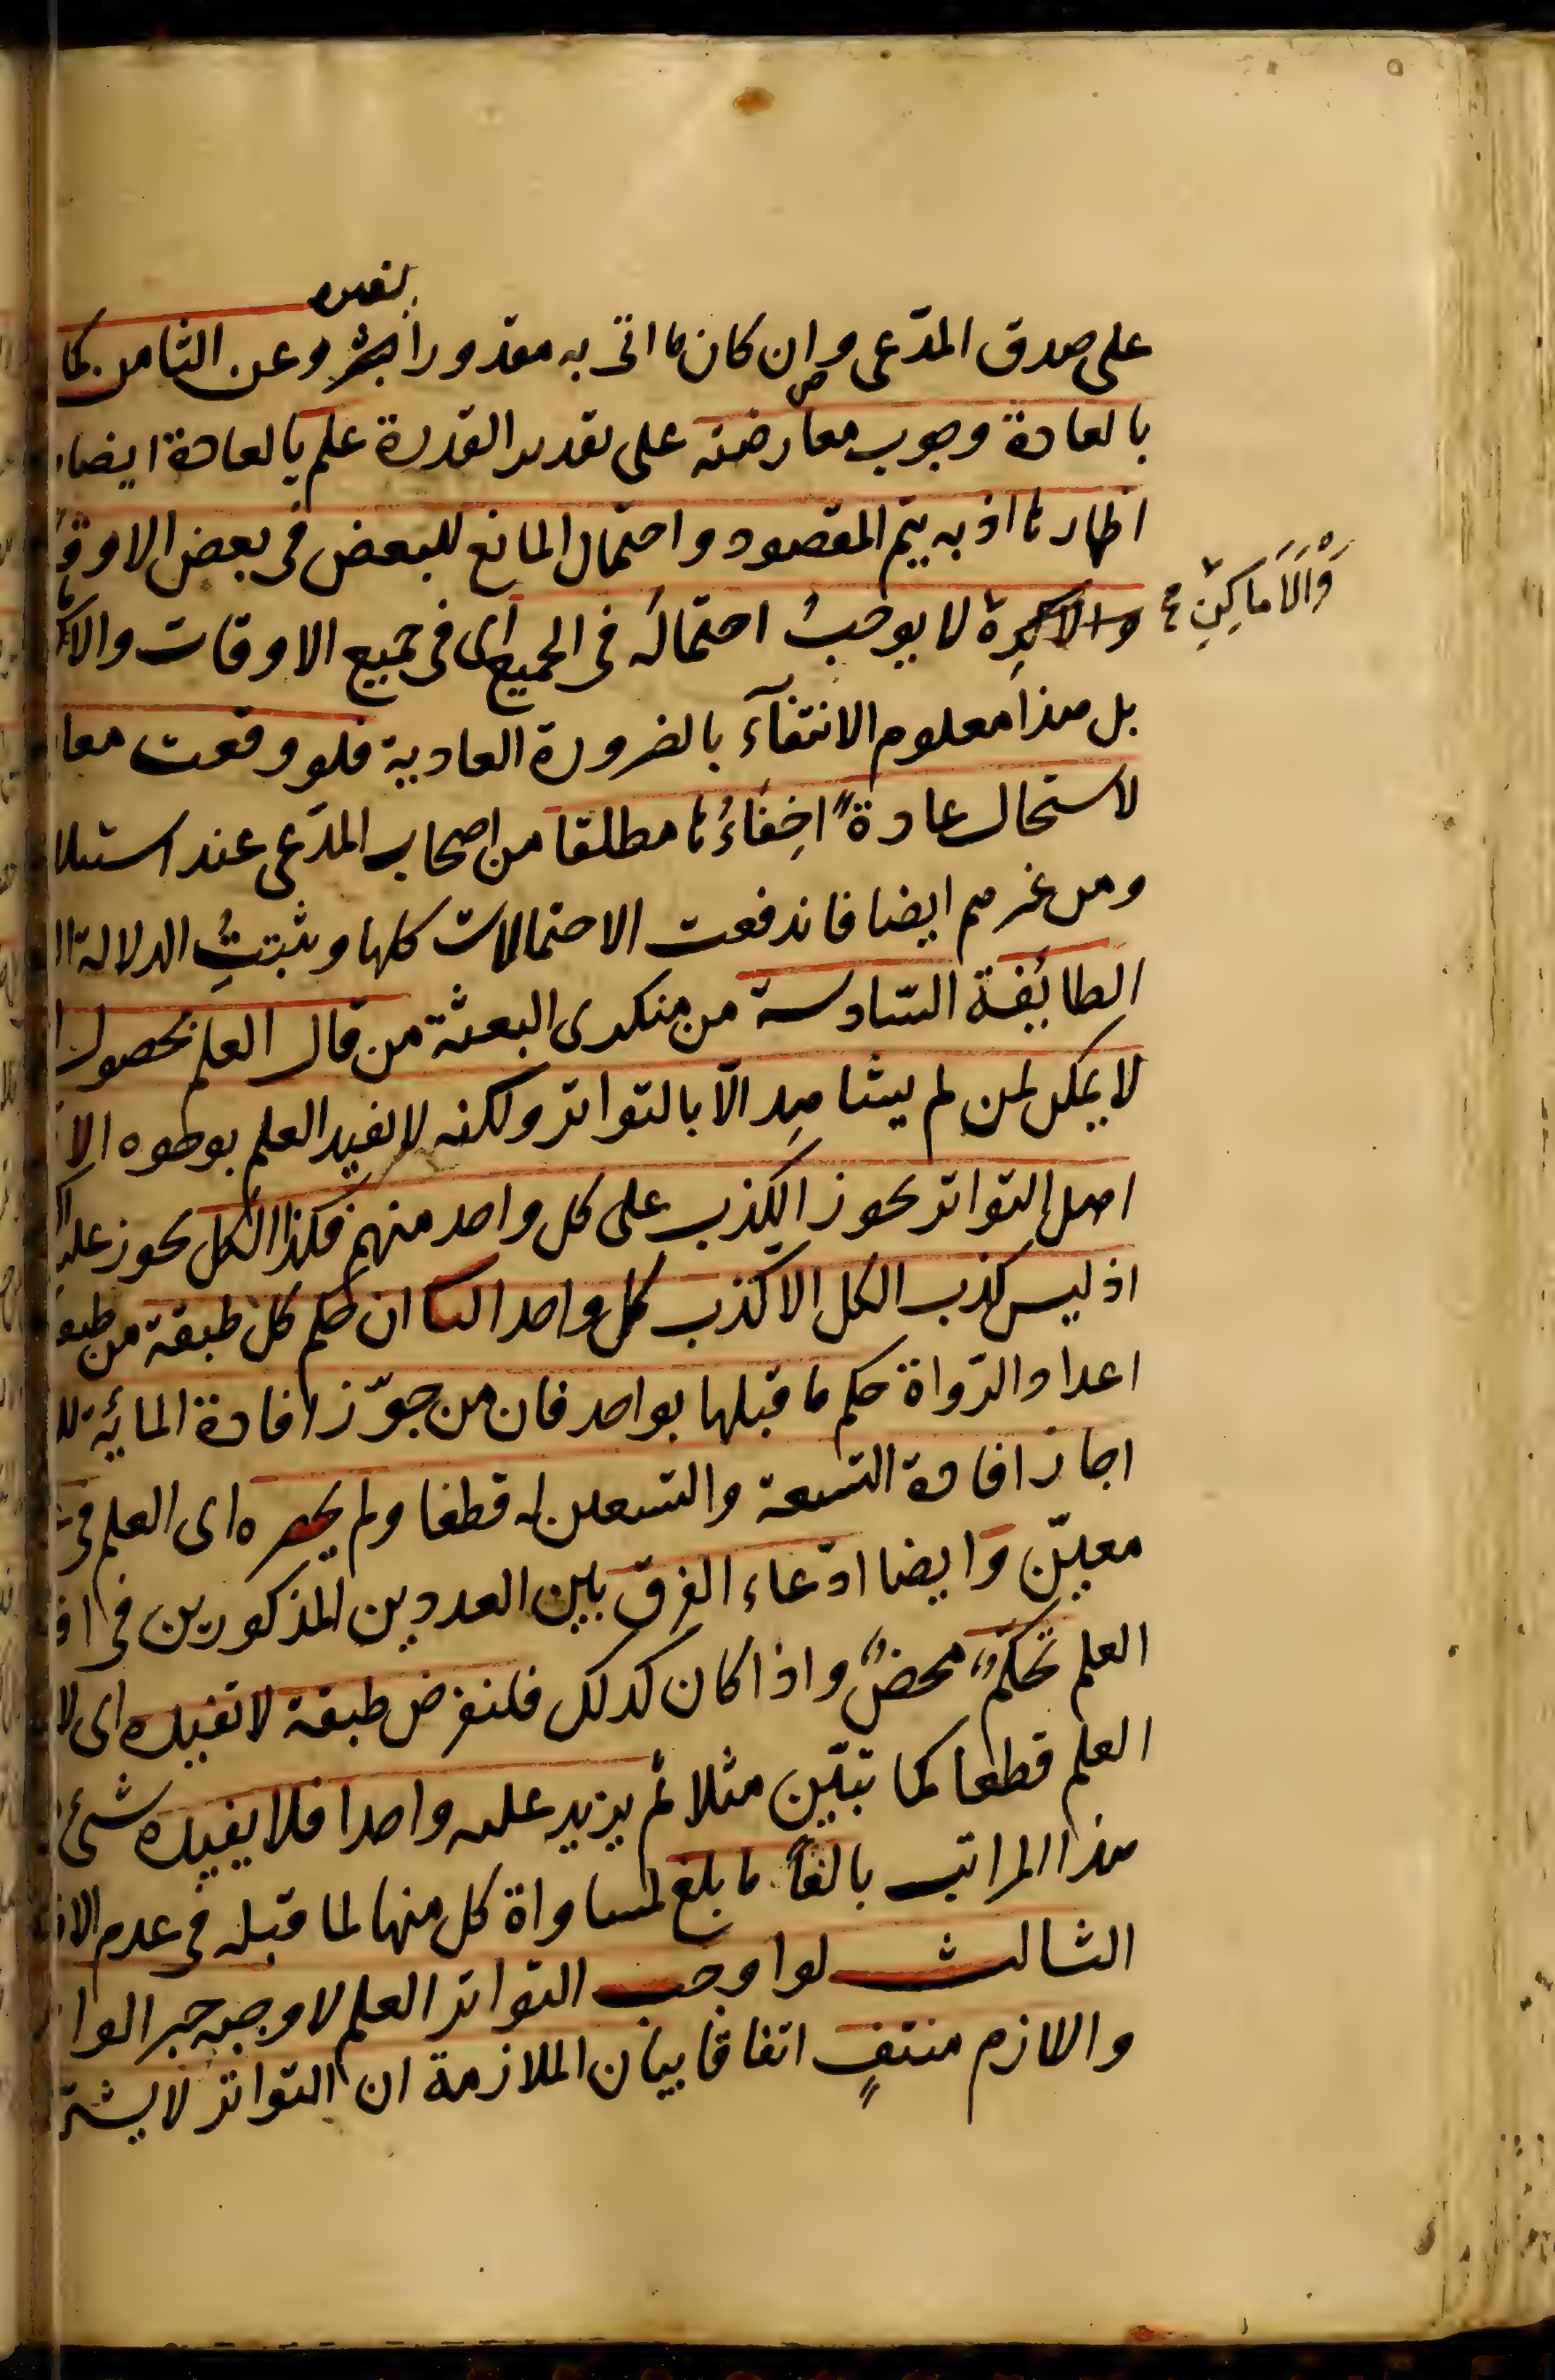 لغيره
على صدق المدّعى وان كان ما اتى به مقدورا وعن الثامن كما
بالعادة وجوب معارضته على تقدير القدرة علم بالعادة ايضا
اظهارها اذ به يتم المقصود واحتمال المانع للبعض فى بعض الاوقا
والاماكن لا يوجبُ احتماله فى الجميع اى فى جميع الاوقات والا
وَالاَمَاكِنِ
بل هذا معلوم الانتفآء بالضرورة العادية فلو وقعت معا
لاستحال عادةً اخِفاءُها مطلقا من اصحاب المدّعى عند استيلا
ومن غيرهم ايضا فاندفعت الاحتمالات كلها وثبتتِ الدلالة ا
الطائفة السّادسة من منكرى البعثة من قال العلم بحصول ا
لا يمكن لمن لم يشاهد الّا بالتواتر ولكنه لا يفيد العلم بوجوه الا
اهل التواتر يجوز الكذب على كل واحد منهم فكذا الكل يجوز عليه
اذ ليس كذب الكل الا كذب كل واحد الثانى ان حكم كل طبقة من طبقا
اعداد الرّواة حكم ما قبلها بواحد فان من جوّز افادة المائة للـ
اجاز افادة التسعة والتسعين له قطعا ولم يحصره اى العلم فى
معيّن وايضا ادّعاء الفرق بين العددين المذكورين فى افا
العلم تحكّمٌ محضٌ واذا كان كذلك فلنفرض طبقة لا تفيده اى لا
العلم قطعا كما تبيّن مثلا ثم يزيد عليه واحدا فلا يفيده شئ
هذا المراتب بالغاً ما بلغ لمساواة كل منها لما قبله فى عدم الا
الثالث لو اوجب التواتر العلم لاوجبه خبر الوا
واللازم منتفٍ اتفاقا بيان الملازمة ان التواتر لا يشتر